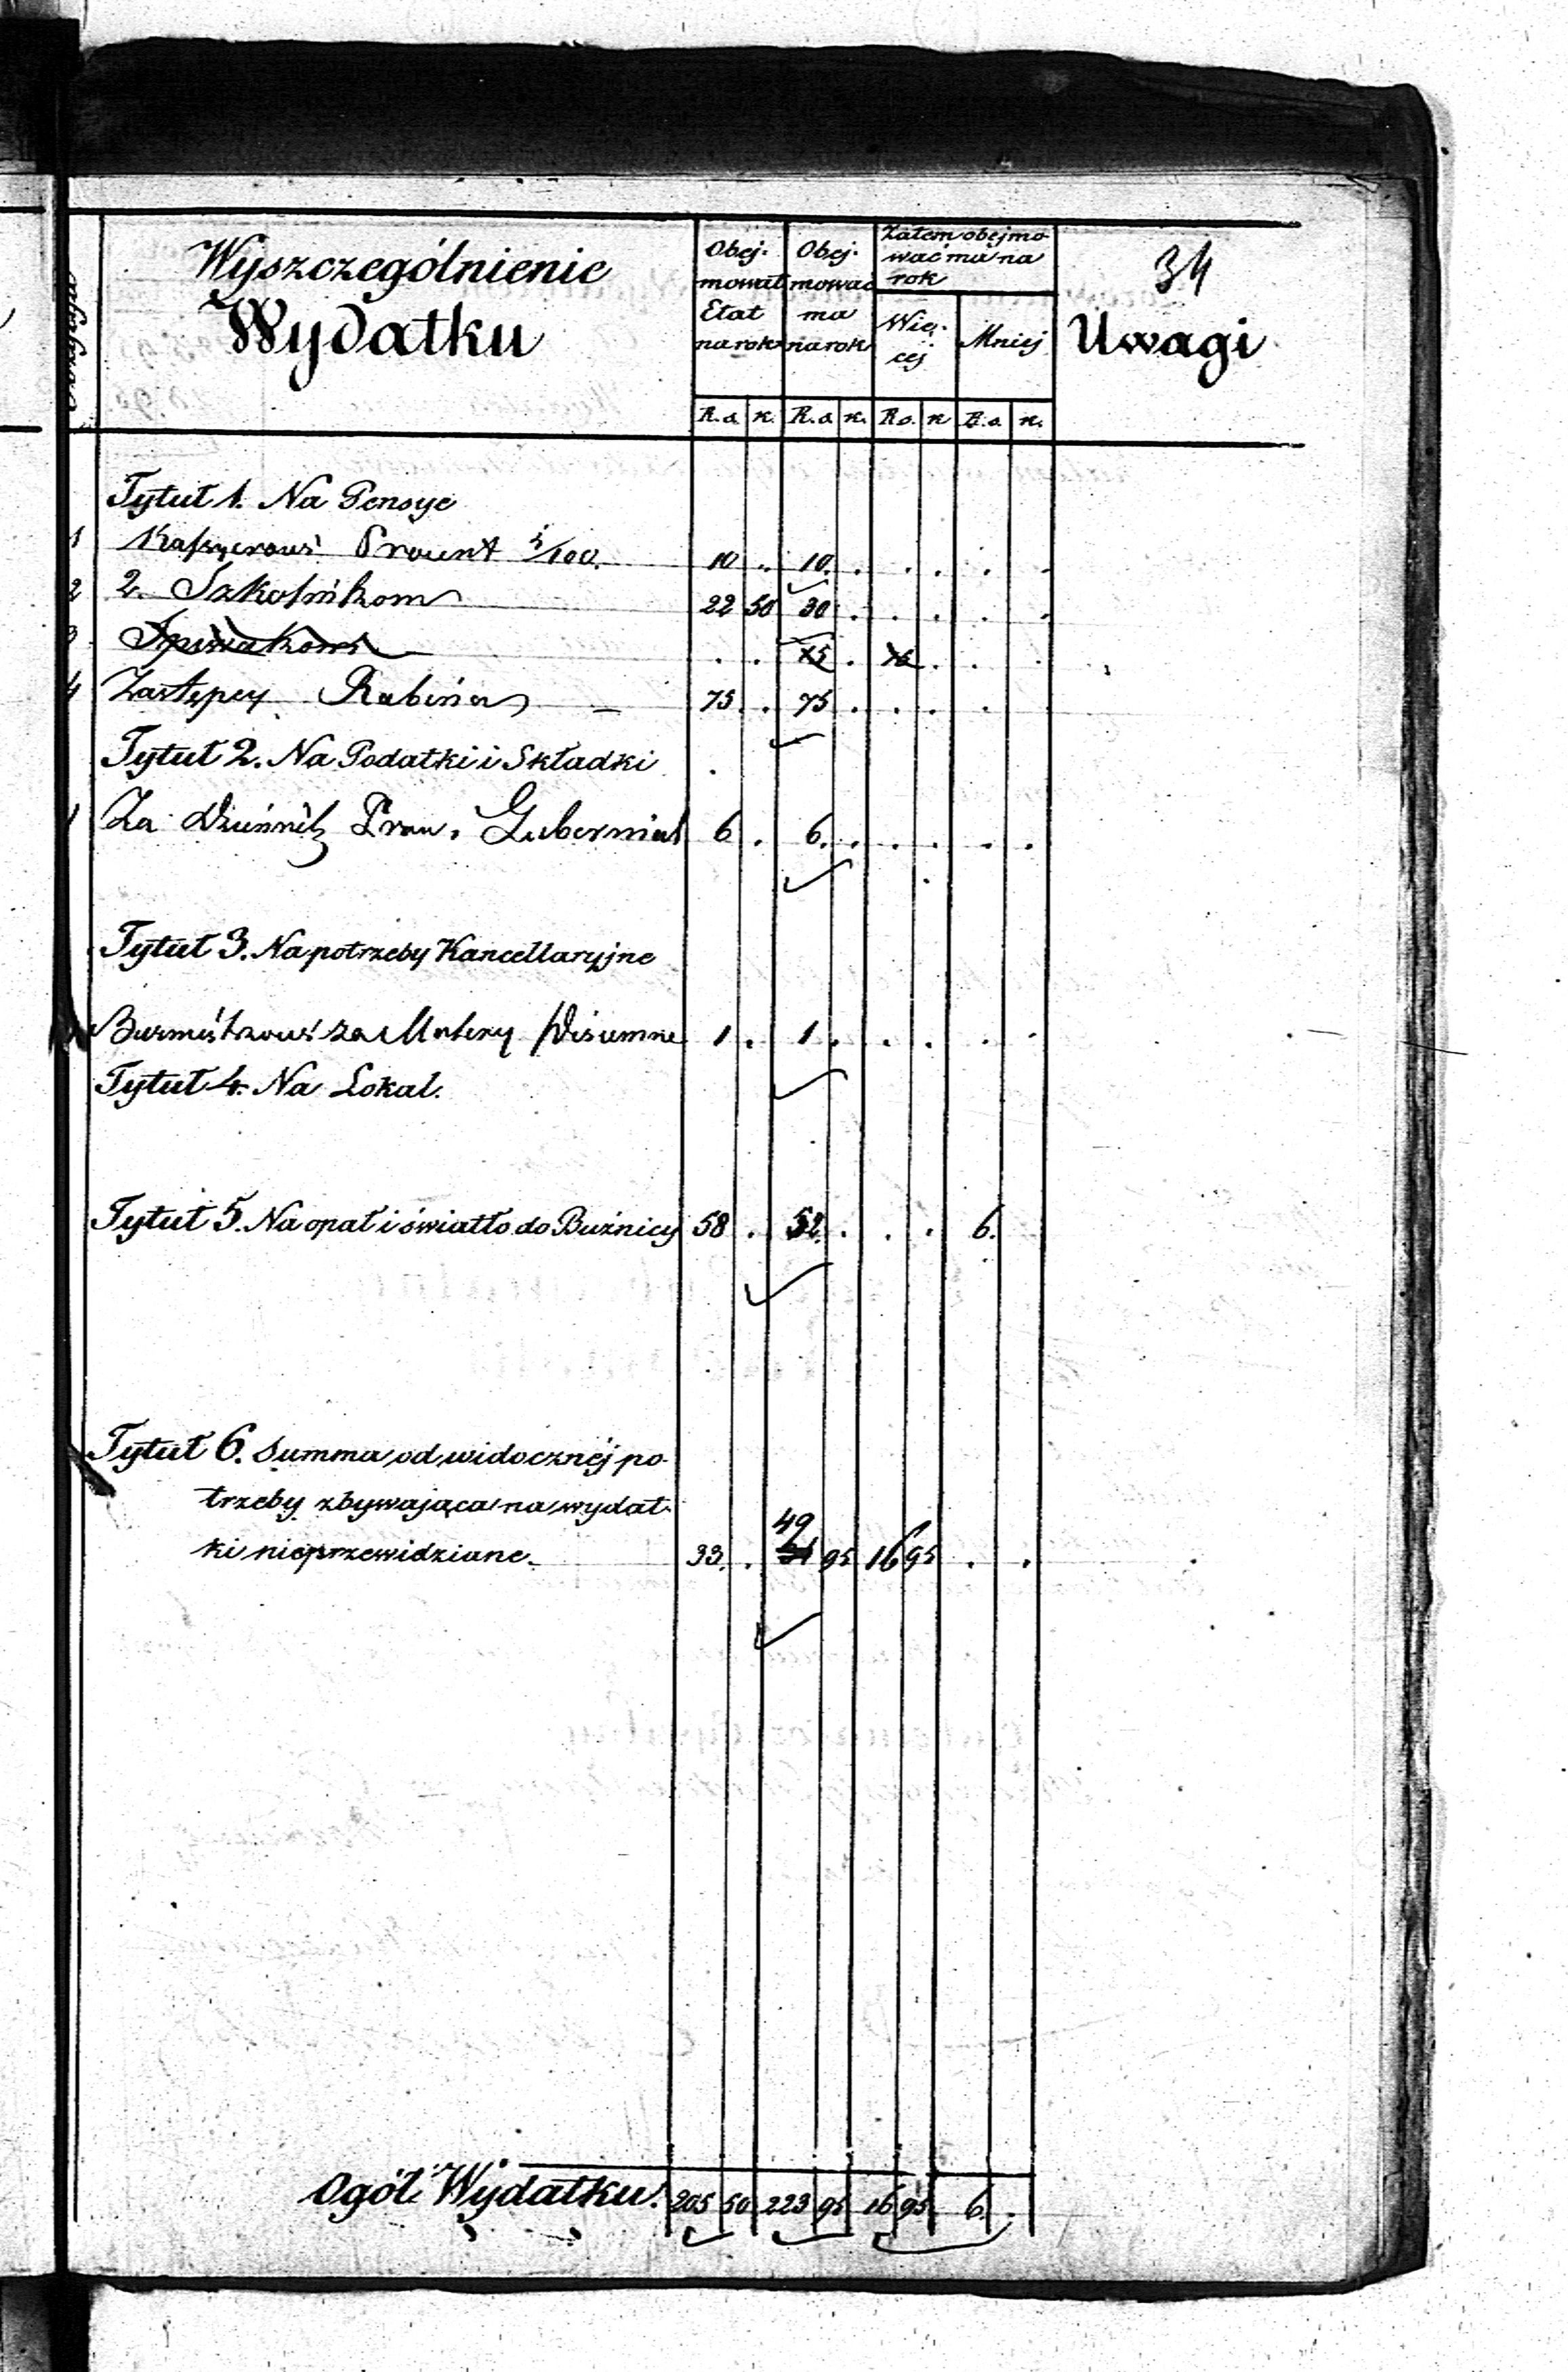 34
Wyszczególnienie
Wydatku
Obej-
mował
Etat
na rok
Obej-
mować
ma
na rok
Zatem obejmo-
wać ma na
rok
Wię-
cej
Mniej
Uwagi
R.s. k. R.s. k. R.s. k. R.s. k.
Tytuł 1. Na Pensye
1 Kassyerowi Procent 5/100. 10 . 10 . . . . .
2 2. Szkolnikom 22 50 30 . . . . .
3 Spiwakowi . . 15 . . . .
4 Zastępcy Rabina 75 . 75 . . . .
Tytuł 2. Na Podatki i Składki
1 Za Dziennik Guberniał 6 . 6 . . . . .
Tytuł 3. Na potrzeby Kancellaryjne
Burmistrzowi za Matery Piśmienne 1 . 1 . . . . .
Tytuł 4. Na Lokal.
Tytuł 5. Na opał i światło do Buźnicy 58 . 52 . . . 6.
Tytuł 6. Summa od widocznéj po-
trzeby zbywająca na wydat-
ki nieprzewidziane. 33 . 49 95 16 95 . .
Ogół Wydatku. 205 50 223 95 16 95 6 .